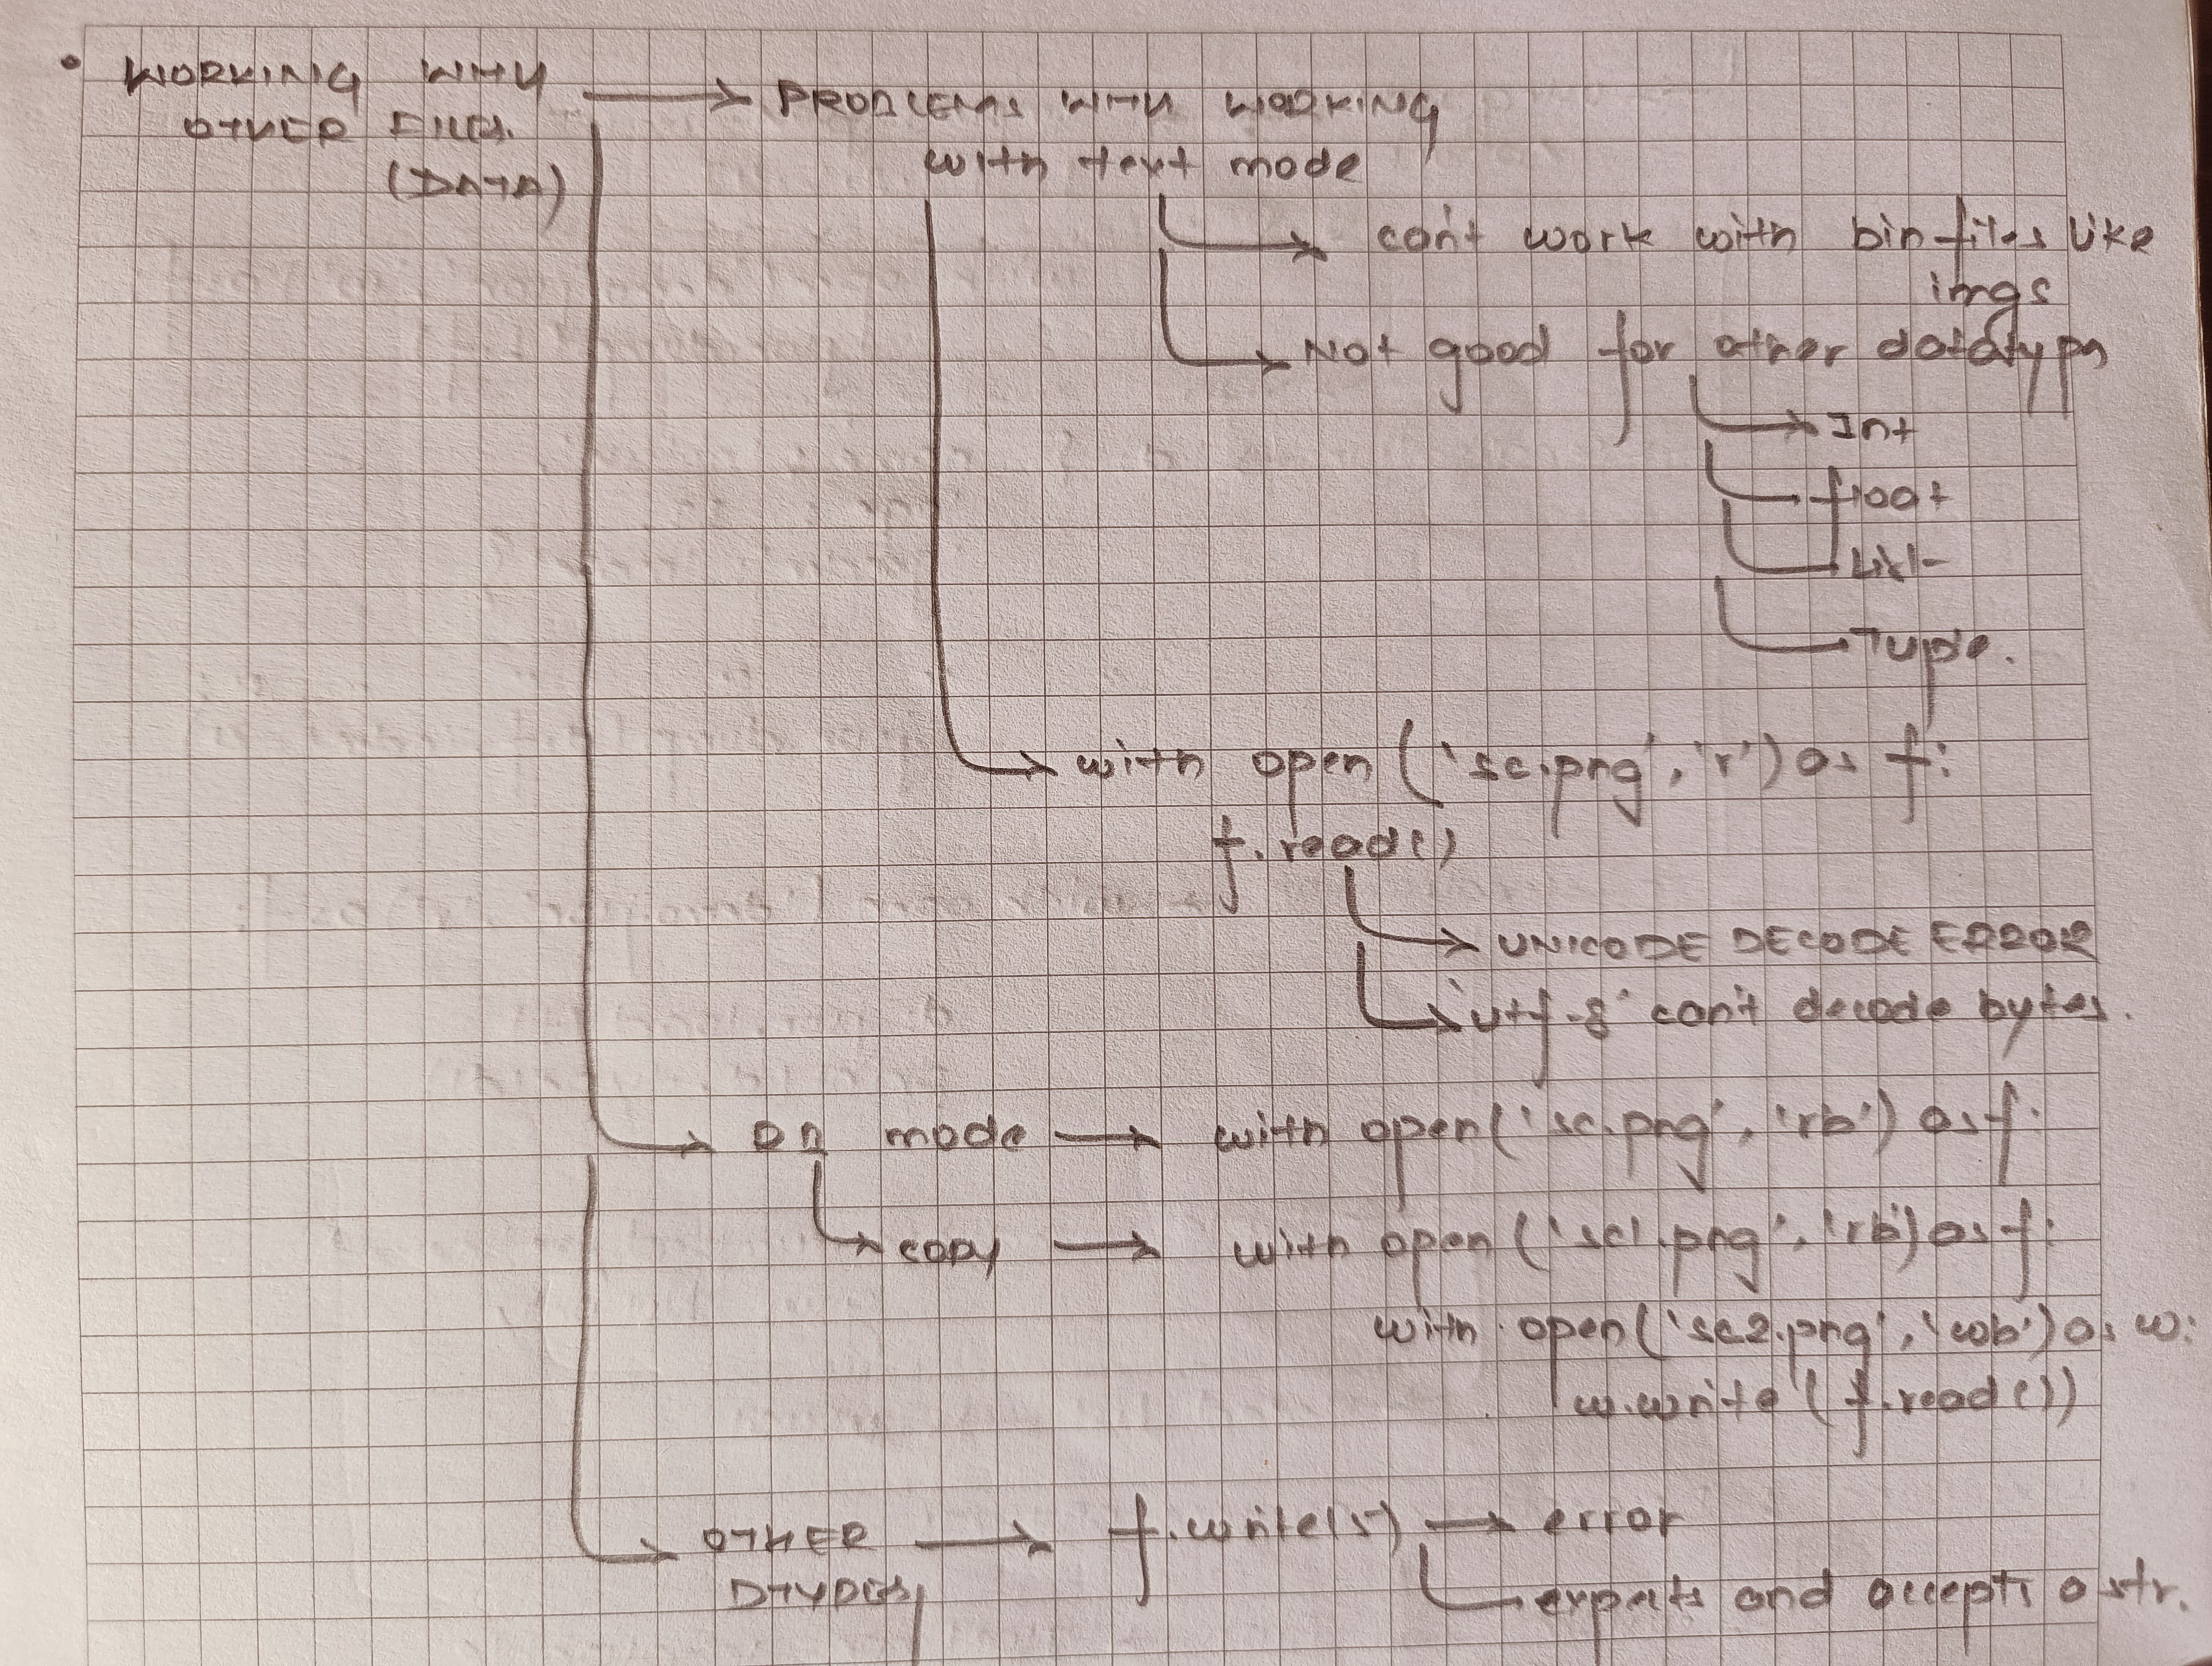 • WORKING WITH
OTHER FILES.
(DATA)
PROBLEMS WITH WORKING
with text mode
can't work with bin files like
imgs
Not good for other datatypes
Int
float
List
Tuple.
with open ('sc.png', 'r') as f:
f.read()
UNICODE DECODE ERROR
'utf-8' can't decode bytes.
mode → with open('sc.png', 'rb') as f:
copy → with open ('sc1.png', 'rb') as f:
with open('sc2.png', 'wb') as w:
w.write (f.read())
OTHER → f.write(5) → error
DTYPES
expects and accepts a str.